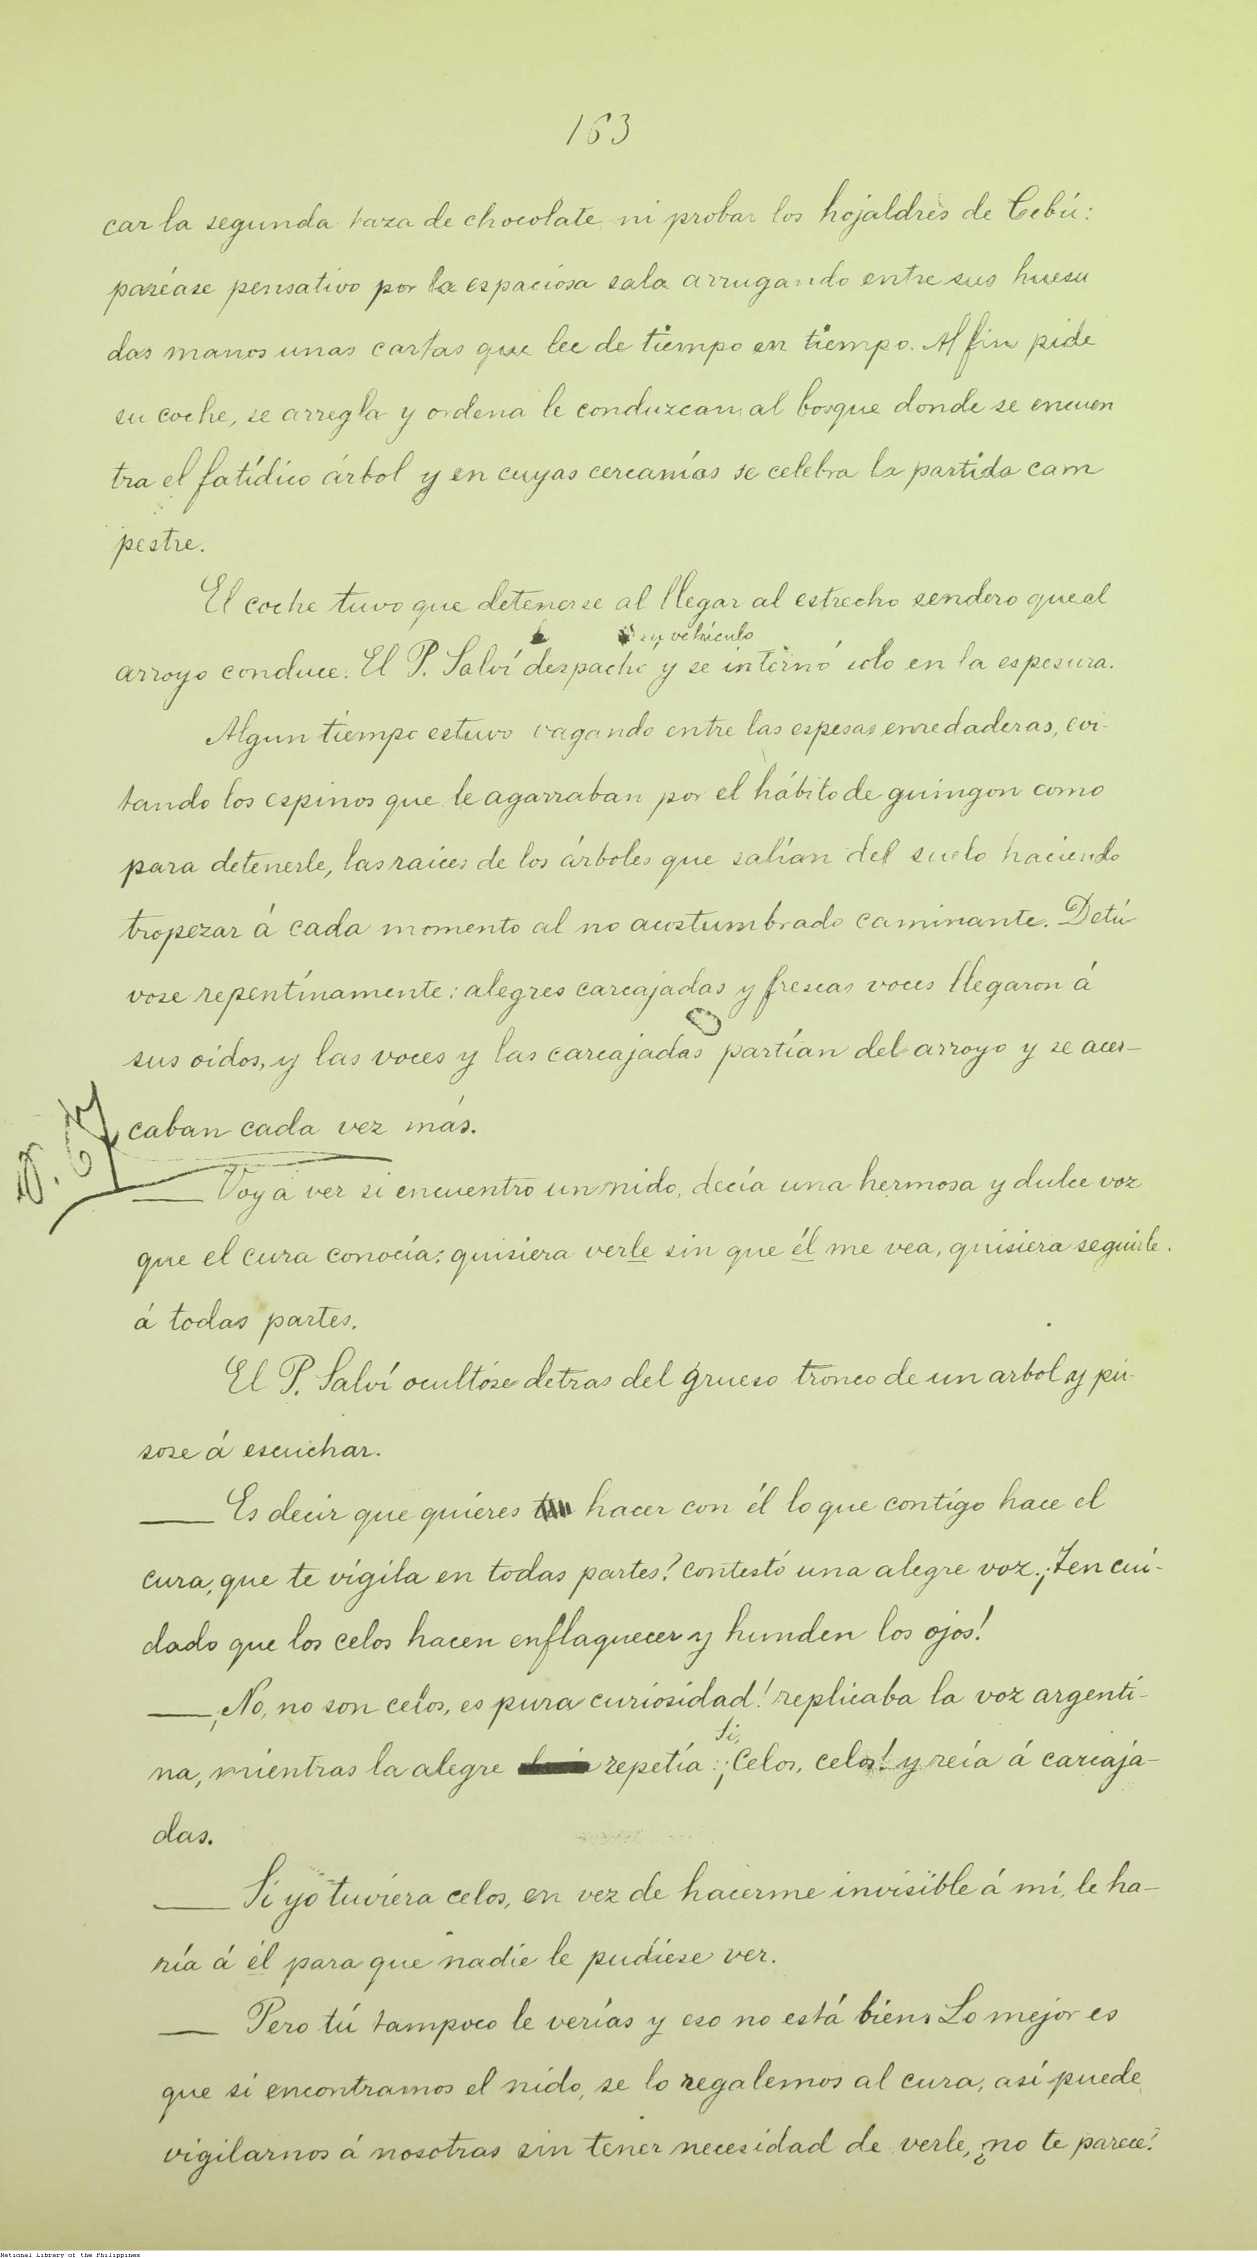 163
car la segunda taza de chocolate ni probar los hojaldres de Cebú:
paséase pensativo por la espaciosa sala arrugando entre sus huesu
das manos unas cartas que lee de tiempo en tiempo. Al fin pide
su coche, se arregla y ordena le conduzcan al bosque donde se encuen
tra el fatídico árbol y en cuyas cercanías se celebra la partida cam
pestre.
El coche tuvo que detenerse al llegar al estrecho sendero que al
su vehículo
arroyo conduce. El P. Salví despachó y se internó solo en la espesura.
Algun tiempo estuvo vagando entre las espesas enredaderas, evi-
tando los espinos que le agarraban por el hábito de guingon como
para detenerle, las raices de los árboles que salían del suelo haciendo
tropezar á cada momento al no acostumbrado caminante. Detú
vose repentinamente: alegres carcajadas y frescas voces llegaron á
sus oidos, y las voces y las carcajadas partían del arroyo y se acer-
caban cada vez más.
— Voy á ver si encuentro un nido, decía una hermosa y dulce voz
que el cura conocía; quisiera verle sin que él me vea, quisiera seguirle
á todas partes.
El P. Salví ocultóse detras del grueso tronco de un arbol y pú-
sose á escuchar.
— Es decir que quieres hacer con él lo que contigo hace el
cura, que te vigila en todas partes? contestó una alegre voz. ¡Ten cui-
dado que los celos hacen enflaquecer y hunden los ojos!
— ¡No, no son celos, es pura curiosidad! replicaba la voz argenti-
Si,
na, mientras la alegre repetía: ¡Celos, celos! y reía á carcaja-
das.
— Si yo tuviera celos, en vez de hacerme invisible á mí, le ha-
ría á él para que nadie le pudiese ver.
— Pero tú tampoco le verías y eso no está bien. Lo mejor es
que si encontramos el nido, se lo regalemos al cura, así puede
vigilarnos á nosotras sin tener necesidad de verle, ¿no te parece?
National Library of the Philippines